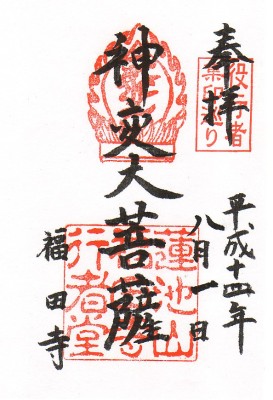 奉拝
役行者
集印巡り
平成十四年
八月一日
神変大菩薩
蓮池山
行者堂
福田寺